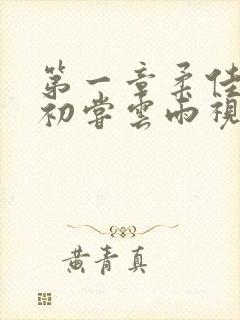 第一章柔佳
初尝雲雨視
黄青真